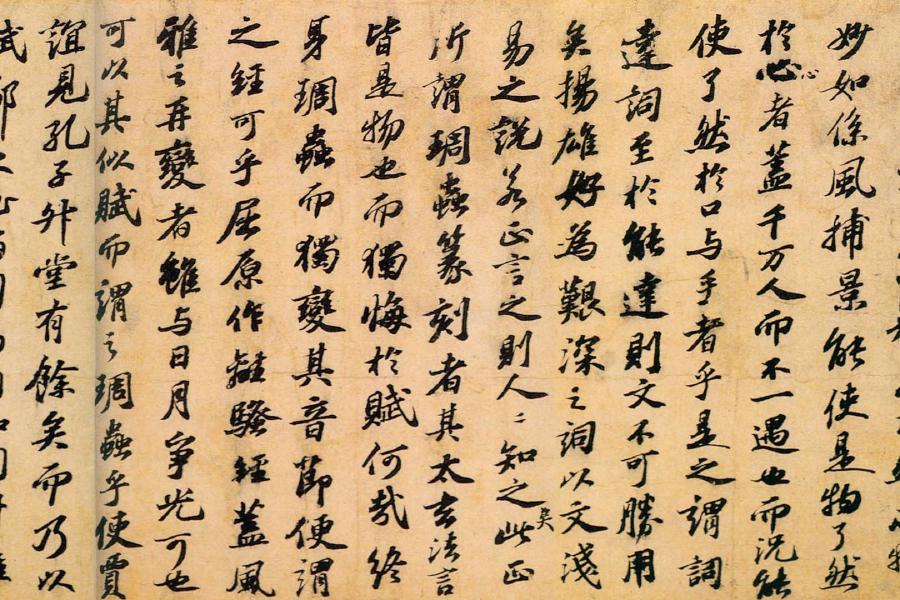 妙如係風捕景能使是物了然
於心心者蓋千万人而不一遇也而況能
使了然於口与手者乎是之謂詞
達詞至於能達則文不可勝用
矣揚雄好為艱深之詞以文淺
易之說若正言之則人〻知之矣此正
所謂琱蟲篆刻者其太玄法言
皆是物也而獨悔於賦何哉終
身琱蟲而獨變其音節便謂
之經可乎屈原作離騷經蓋風
雅之再變者雖与日月爭光可也
可以其似賦而謂之琱蟲乎使賈
誼見孔子升堂有餘矣而乃以